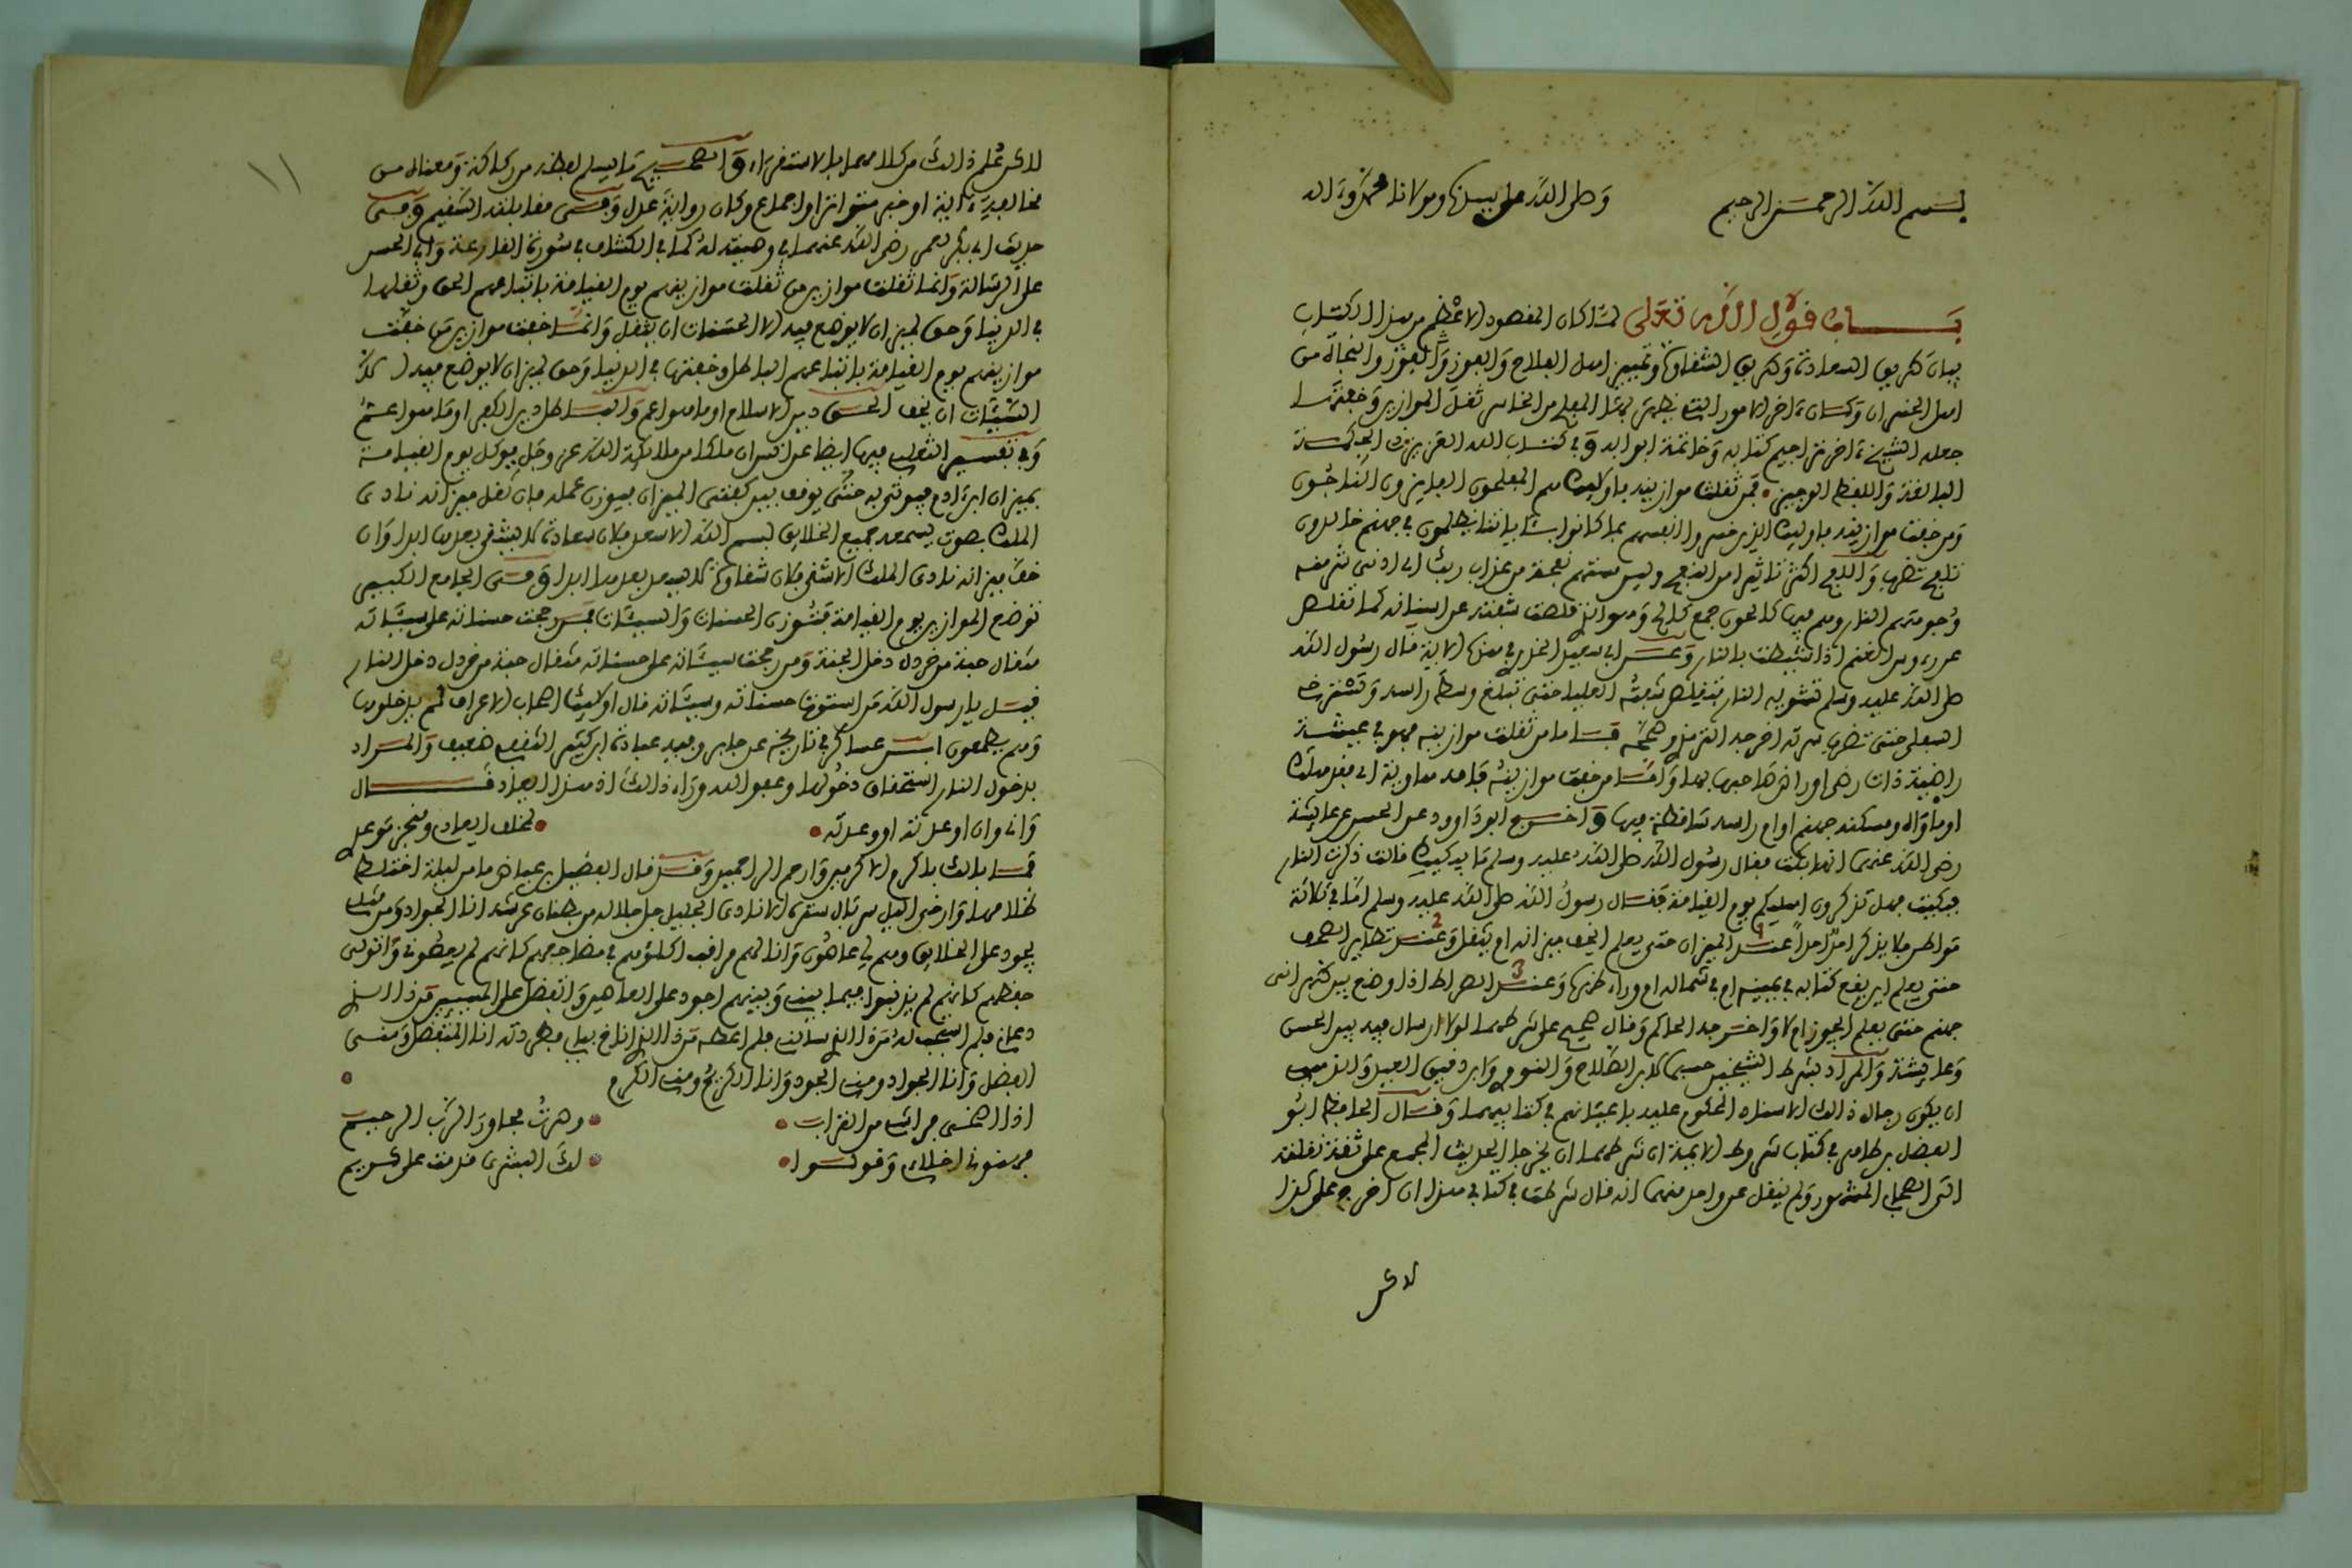 بسم الله الرحمن الرحيم وصلى الله على سيدنا ومولانا محمد وءاله
باب قول الله تعلى لما كان المقصود الاعظم من هذا الكتاب
بيان طريق السعادة وطريق الشقاوة وتمييز اهل الفلاح والفوز والنجاة من
اهل الخسران وكان ءاخر الامور التي يظهر بها المفلح من الخاسر ثقل الموازين وخفتها
جعله الشيخ ءاخر تراجم كتابه وخاتمة ابوابه وفي كتاب الله العزيز ذي الحكمة
البالغة واللفظ الوجيز فمن ثقلت موازينه فاوليك هم المفلحون الفايزون الناجون
ومن خفت موازينه فاوليك الذين خسروا انفسهم بما كانوا بئاياتنا يظلمون في جهنم خالدون
تلفح تضرب واللفح اكثر تاثيرا من النفح وليس مستهم نفحة من عذاب ربك اي ادنى شيء منه
وجوههم النار وهم فيها كالحون جمع كالح وهو الذي قلصت شفته عن اسنانه كما تقلص
عن رءوس الغنم اذا شيطت بالنار وعن ابي سعيد الخدري في هذه الاية قال رسول الله
صلى الله عليه وسلم تشويه النار فتقلص شفته العليا حتى تبلغ وسط راسه وتسترخي
السفلى حتى تضرب سرته اخرجه الترمذي وصححه فاما من ثقلت موازينه فهو في عيشة
راضية ذات رضى اي راض صاحبها بها واما من خفت موازينه فامه هاوية اي مقره
او ماواه ومسكنه جهنم او ام راسه ساقطة فيها واخرج ابو داوود عن الحسن عن عايشة
رضي الله عنها انها بكت فقال رسول الله صلى الله عليه وسلم ما يبكيك قالت ذكرت النار
فبكيت فهل تذكرون اهليكم يوم القيامة فقال رسول الله صلى الله عليه وسلم اما في ثلاثة
مواطن فلا يذكر احد احدا عند الميزان حتى يعلم ايخف ميزانه ام يثقل وعند تطاير الصحف
حتى يعلم اين يقع كتابه في يمينه ام في شماله ام وراء ظهره وعند الصراط اذا وضع بين ظهراني
جهنم حتى يعلم ايجوز ام لا واخرجه الحاكم وقال صحيح على شرطهما لولا ارسال فيه بين الحسن
وعايشة والمراد بشرط الشيخين
ان يكون رجال ذلك الاسناد المحكوم عليه باعيانهم في كتابيهما وقال الحافظ ابو
الفضل بن طاهر في كتاب شروط الايمة ان شرطهما ان يخرجا الحديث المجمع على ثقة نقلته
الى الصحابي المشهور ولم ينقل عن واحد منهما انه قال شرطت في كتابي هذا ان اخرج على كذا
لاكن
لاكن علم ذالك من كلامهما بالاستقراء والصحيح ما يسلم لفظه من ركاكة ومعناه من
مخالفة ءاية او خبر متواتر او اجماع وكان رواية عدل وفي مقابلته السقيم وفي
حديث ابي بكر لعمر رضي الله عنهما في وصيته له كما في الكشاف في سورة القارعة وابي الحسن
على الرسالة وانما ثقلت موازين من ثقلت موازينهم يوم القيامة باتباعهم الحق وثقلها
في الدنيا وحق لميزان لا يوضع فيه الا الحسنات ان يثقل وانما خفت موازين من خفت
موازينهم يوم القيامة باتباعهم الباطل وخفتها في الدنيا وحق لميزان لا يوضع فيه الا
السيئات ان يخف الحق دين الاسلام او ما هو اعم والباطل دين الكفر او ما هو اعم
وفي تفسير الثعلبي فيها ايضا عن انس ان ملكا من ملائكة الله عز وجل يوكل يوم القيامة
بميزان ابن ءادم فيوتى به حتى يوقف بين كفتي الميزان فيوزن عمله فان ثقل ميزانه نادى
الملك بصوت يسمعه جميع الخلايق باسم الله الا سعد فلان سعادة لا يشقى بعدها ابدا وان
خف ميزانه نادى الملك الا شقي فلان شقاوة لا يسعد بعدها ابدا وفي الجامع الكبير
توضع الموازين يوم القيامة فتوزن الحسنات والسيئات فمن رجحت حسناته على سيئاته
مثقال حبة من خردل دخل الجنة ومن رجحت سيئاته على حسناته مثقال حبة من خردل دخل النار
قيل يا رسول الله من استوت حسناته وسيئاته قال اوليك اصحاب الاعراف لم يدخلوها
وهم يطمعون ابن عساكر في تاريخه عن جابر وفيه عبادة بن كثير الثقفي ضعيف والمراد
بدخول النار استحقاق دخولها وعفو الله وراء ذالك اذ هذا الوعيد قال
واني وان اوعدته او وعدته لمخلف ايعادي ومنجز موعدي
فما بالك باكرم الاكرمين وارحم الراحمين وقد قال الفضيل بن عياض ما من ليلة اختلط
ظلامها وارخى الليل سربال سترها الا نادى الجليل جل جلاله من بطنان عرشه انا الجواد ومن مثلي
يجود على الخلايق وهم لي عاصون وانا لهم مراقب اكلؤهم في مضاجعهم كانهم لم يعصوني واتولى
حفظهم كانهم لم يذنبوا فيما بيني وبينهم اجود على العاصي واتفضل على المسيء من ذا الذي
دعاني فلم استجب له من ذا الذي سالني فلم اعطه من ذا الذي اناخ ببابي فطردته انا المتفضل ومني
الفضل وانا الجواد ومني الجود وانا الكريم ومني الكرم
اذا امسى فراشي من التراب وصرت مجاور الرب الرحيم
فهنوني اخلاي وقولوا لك البشرى قدمت على كريم